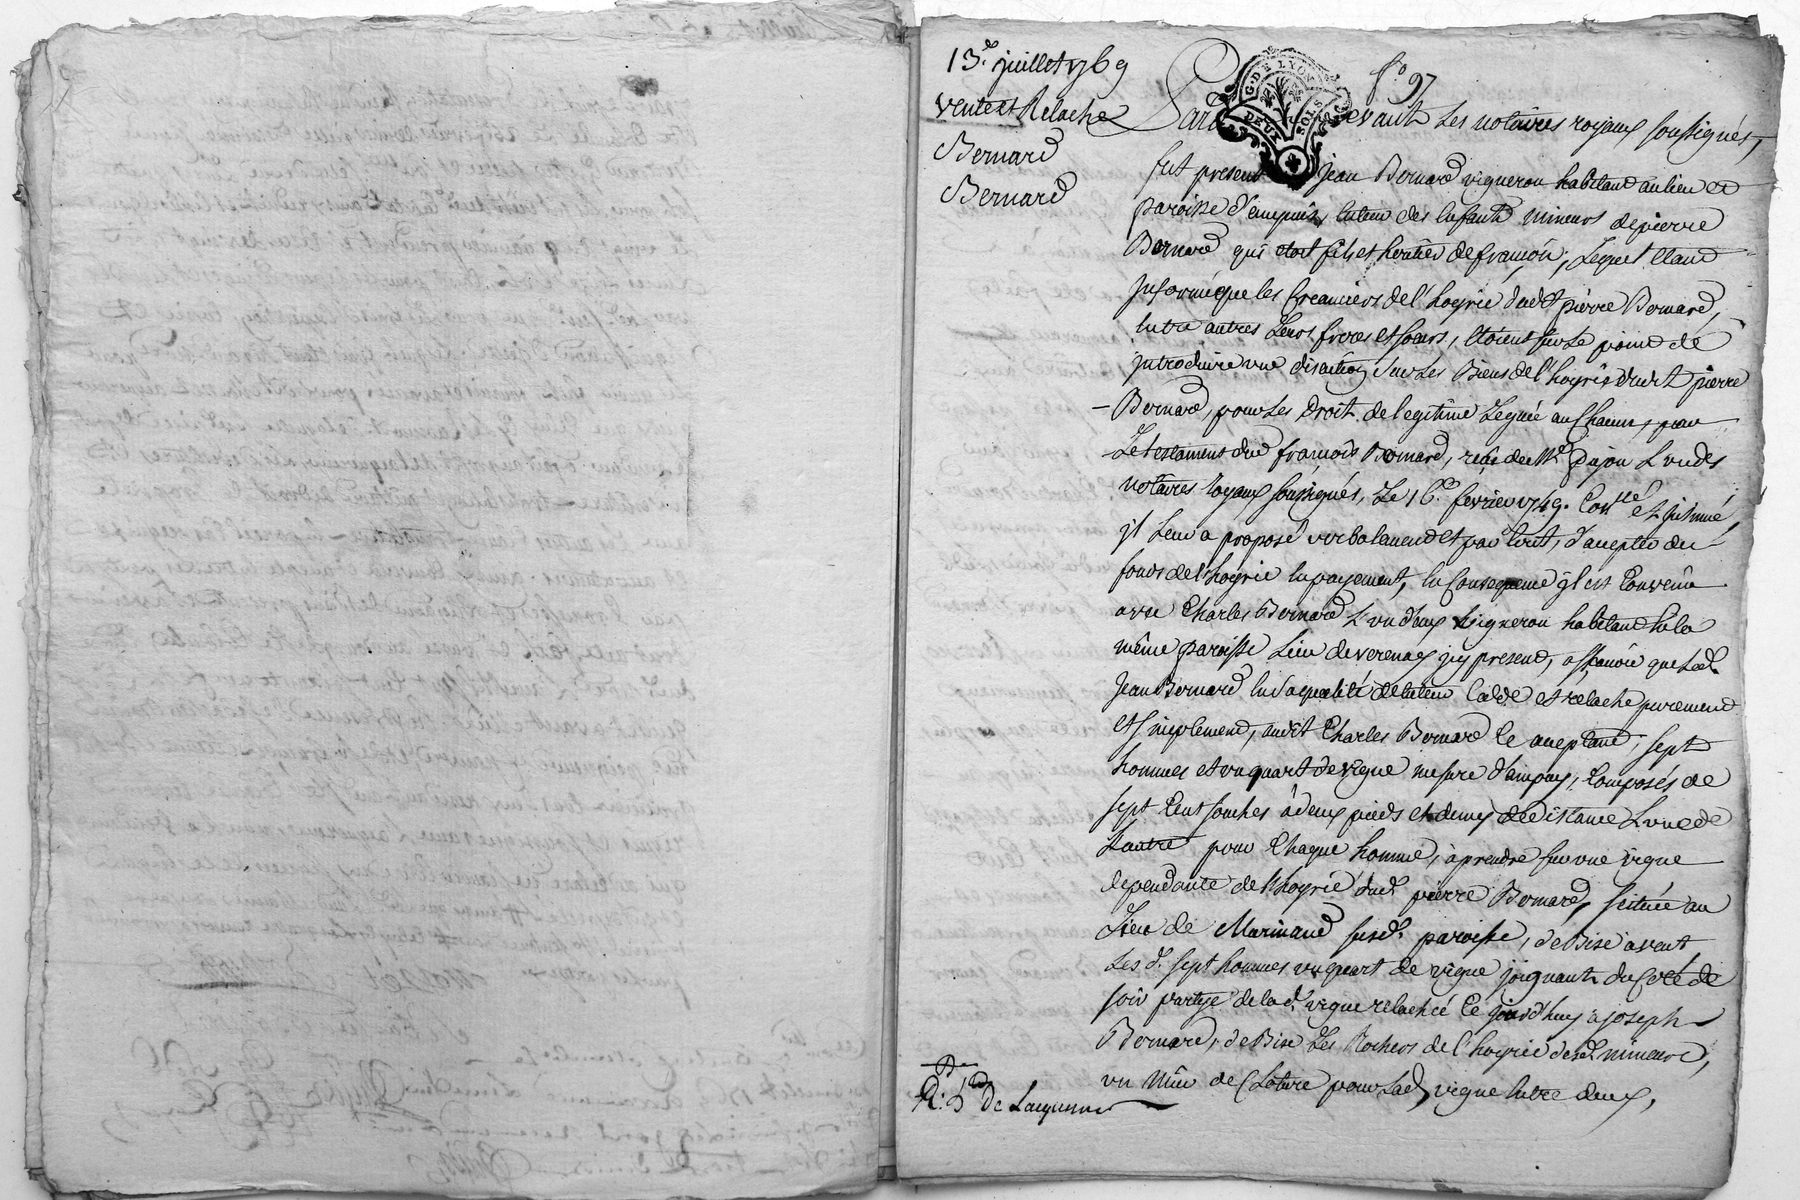 13.e juillet 1769
vente et Relache
Bernard
Bernard
f.o 97
G. DE LYON
DEUX SOLS
Pardevant Les notaires royaux soussignés,
fut present Jean Bernard vigneron habitant au lieu et
paroisse d'ampuis, tuteur des Enfants mineurs de pierre
Bernard qui etoit fils et heritier de françois, Lequel Etant
Informé que les Creanciers de l'hoyrie dudt pierre Bernard,
Entre autres Leurs freres et soeurs, Etoient sur Le point de
Introduire une discution, sur Les Biens de l'hoyrie dudit pierre
Bernard, pour Les Droits de legitime Legués au Chacun, par
Le testament dud françois Bernard, reçu de Me Dujon L'un des
notaires Royaux soussignés, Le 16.e fevrier 1749. Con.llé et Insinué,
Il Leur a proposé verbalement et par Ecrit, d'accepter des
fonds de l'hoyrie En payement, En Consequence Il est Convenu
avec Charles Bernard L'un d'eux Vigneron habitant En la
même paroisse Lieu de verenay Icy present, assavoir que Led.
Jean Bernard En sa qualité de tuteur Cede et relache purement
et simplement, audit Charles Bernard Ce acceptant, sept
hommes et un quart de vigne mesure d'ampuy, Composés de
sept Cent souches à deux pieds et demy de distance L'une de
L'autre pour Chaque homme, à prendre sur une vigne
dependante de l'hoyrie dud. pierre Bernard, scituée au
Lieu de Marinand susd. paroisse, de Bise avent
Les d. sept hommes un quart de vigne joignant du Coté de
soir partye de lad. vigne relachée Ce jourd'huy à joseph
Bernard, de Bise Les Rochers de l'hoyrie desd. mineurs,
un Mur de Cloture pour Lad. vigne Entre deux,